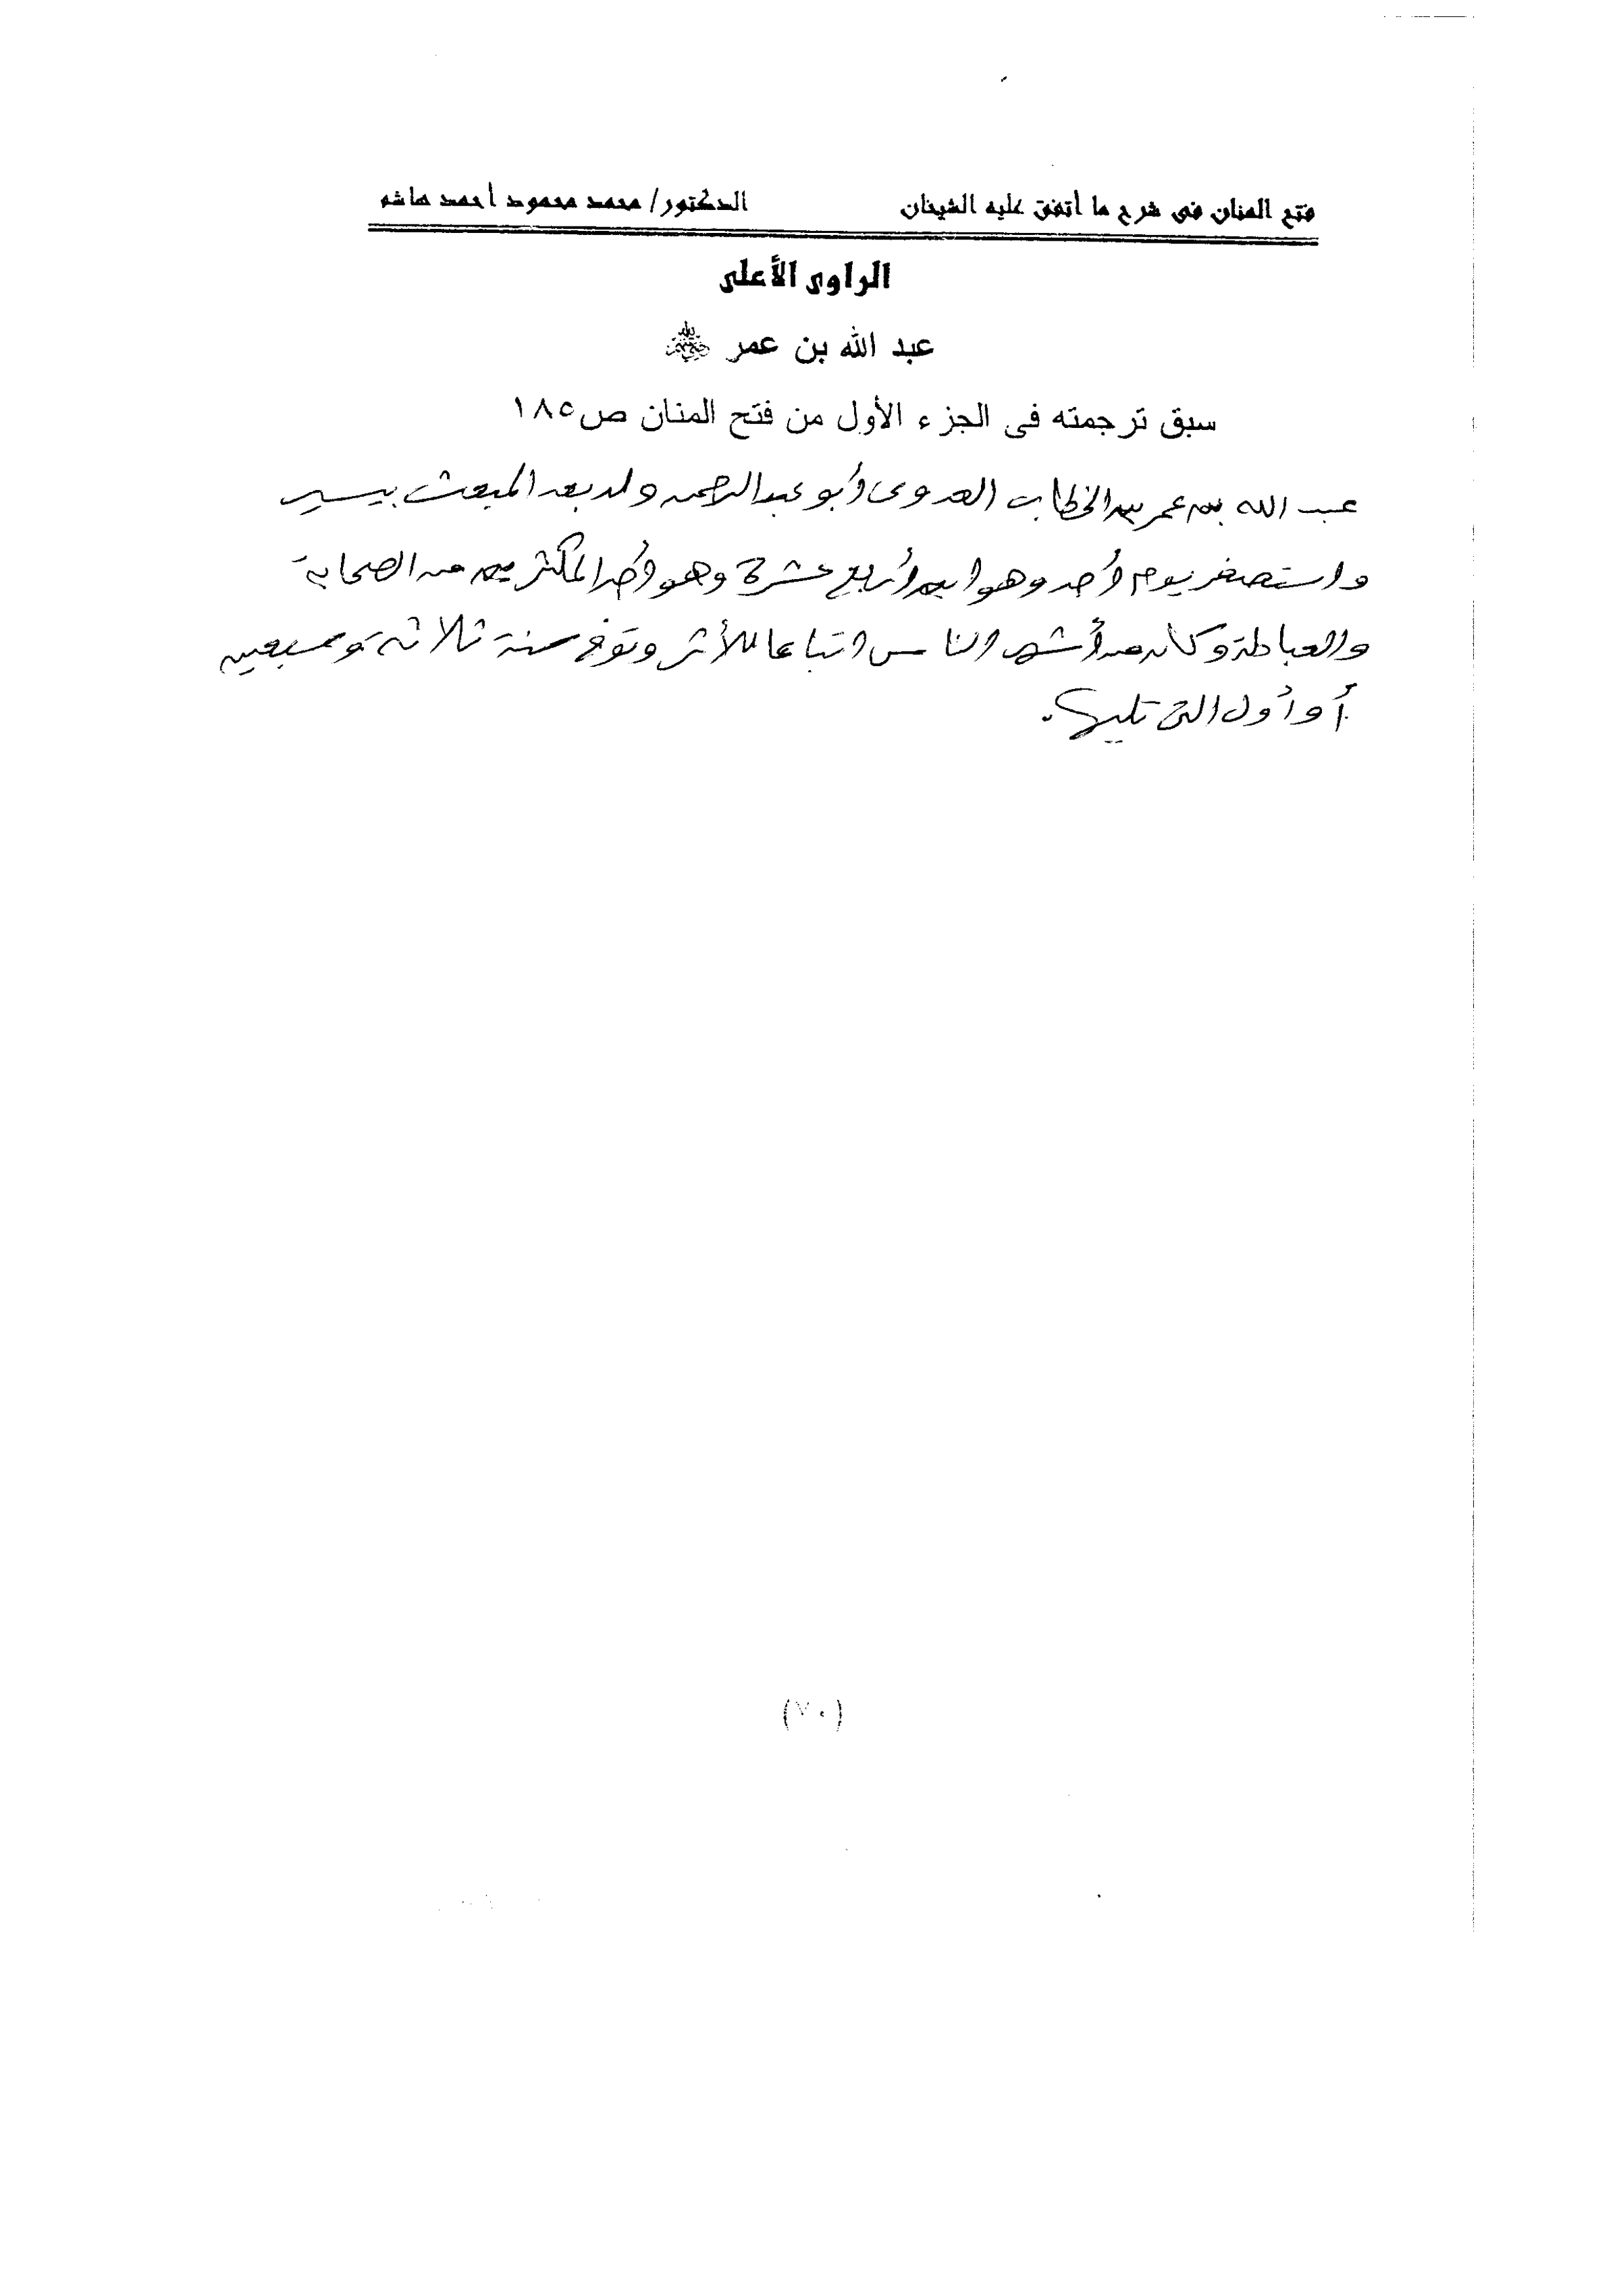 فتح المنان فى شرح ما أتفق عليه الشيخان الدكتور/ محمد محمود أحمد هاشم
الراوى الأعلى
عبد الله بن عمر رضي الله عنهما
سبق ترجمته فى الجزء الأول من فتح المنان ص١٨٥
عبد الله بن عمر بن الخطاب العدوى أبو عبد الرحمن ولد بعد المبعث بيسير
واستصغر يوم أحد وهو ابن أربع عشرة وهو أحد المكثرين من الصحابة
والعبادلة وكان من أشد الناس اتباعا للأثر وتوفى سنة ثلاثة وسبعين
أو أول التى تليها.
(٧٠)